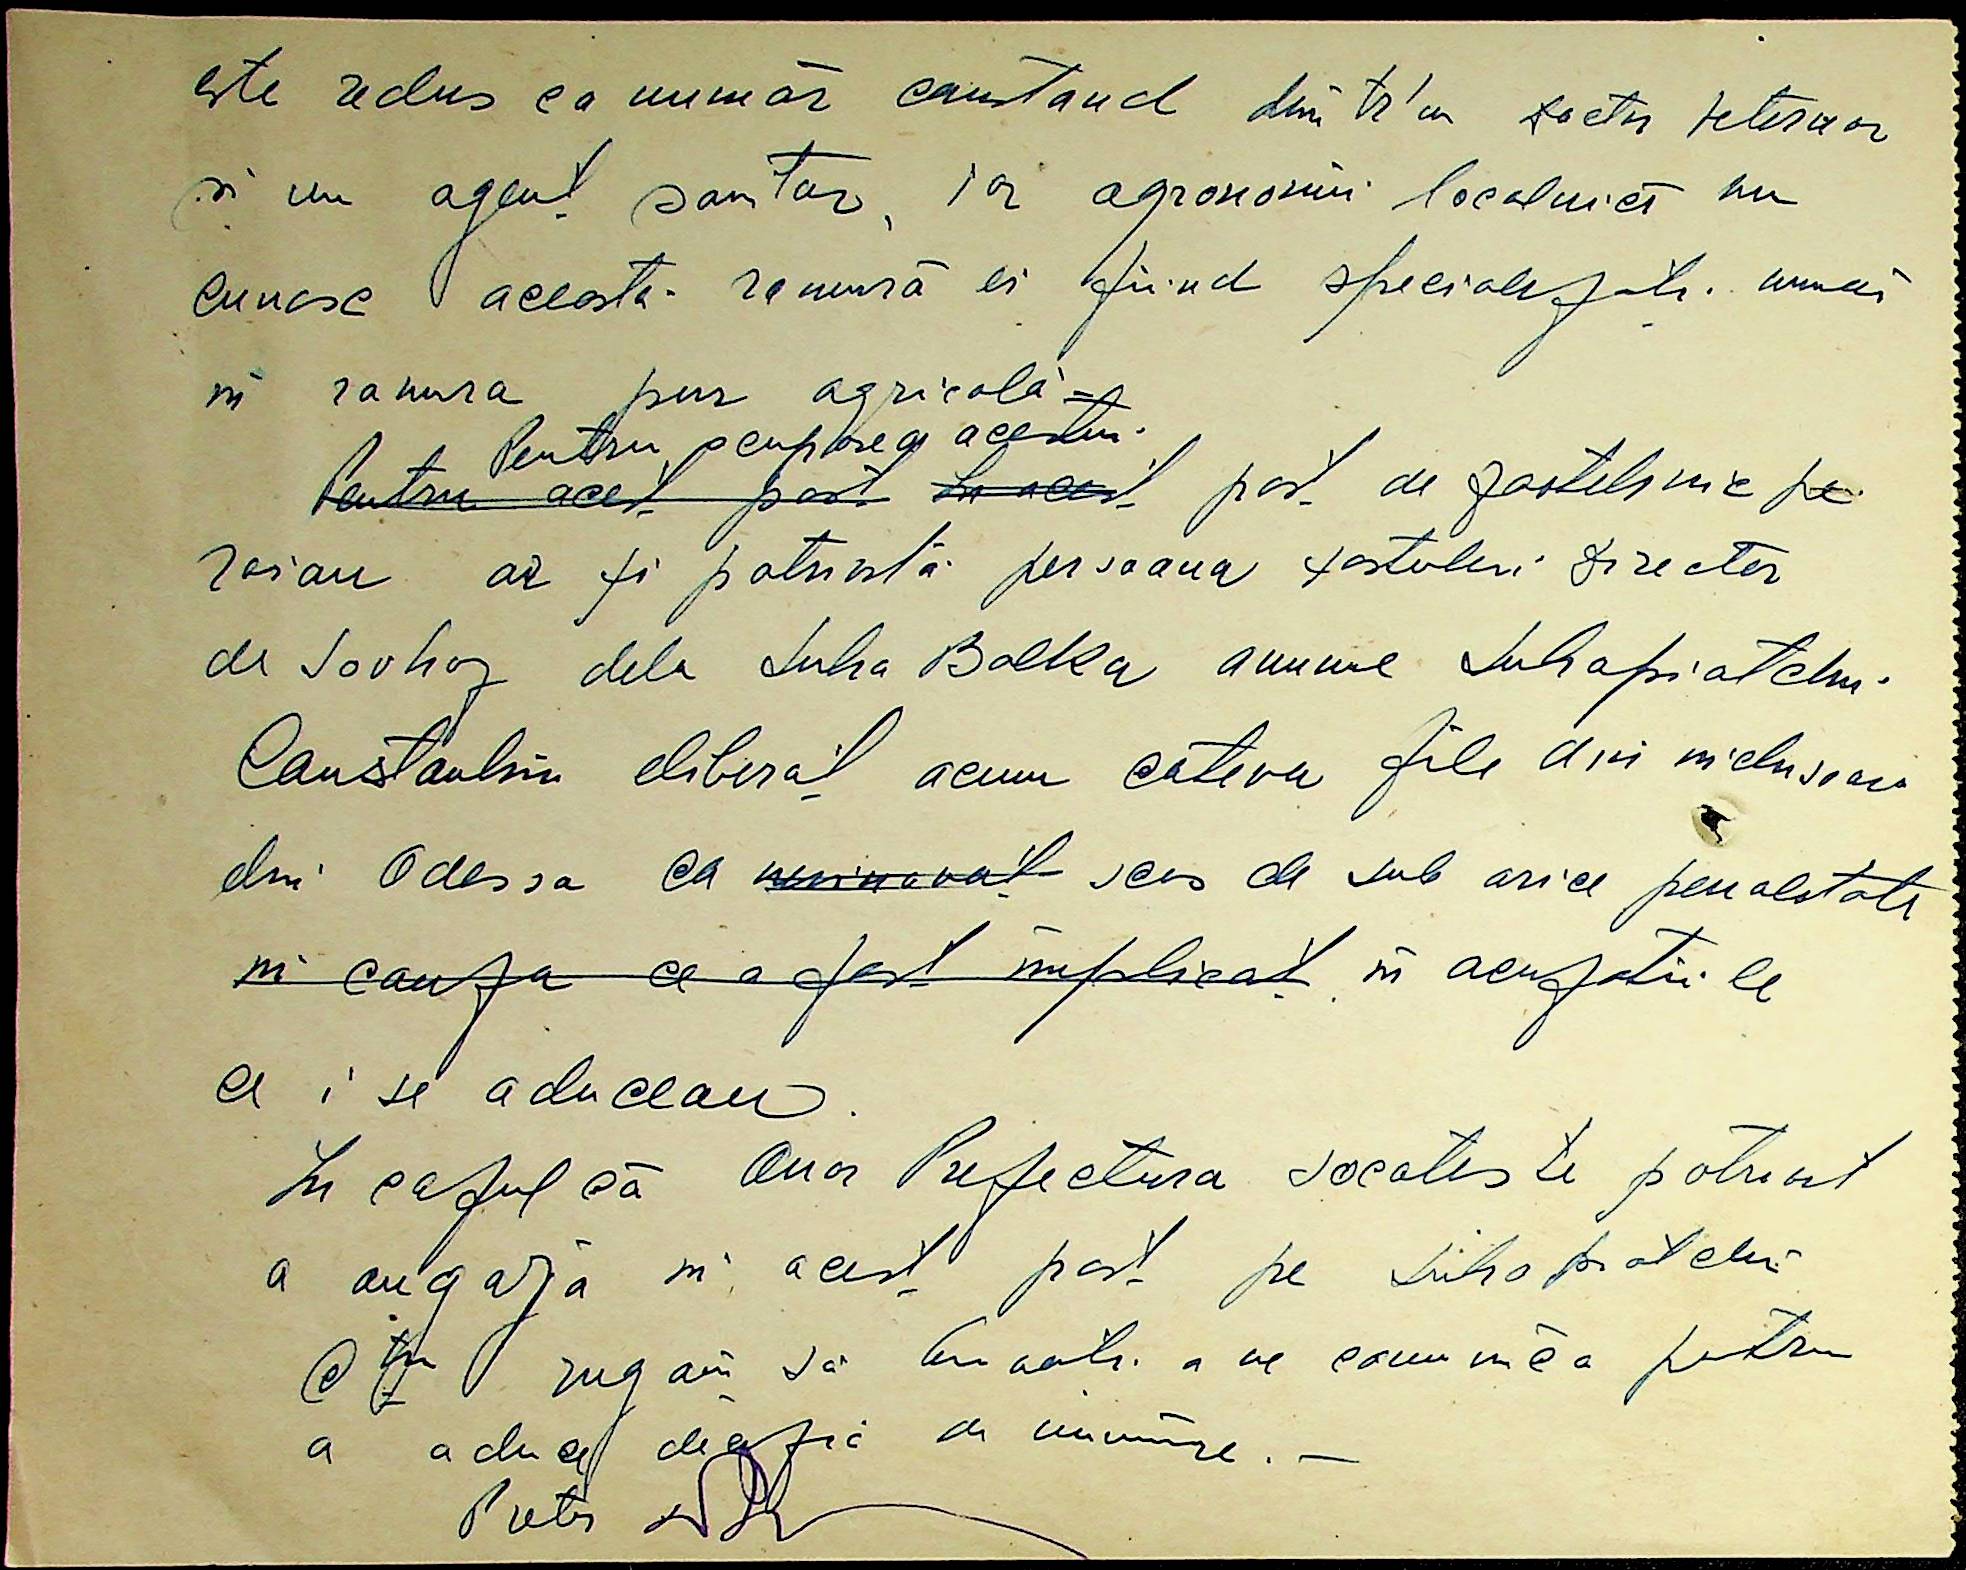 este redus ca număr constand dintr'un doctor veterinar
și un agent sanitar, iar agronomii localnici nu
cunosc aceasta ramură ei fiind specializati numai
in ramura pur agricolă =
Pentru ocuparea acestui
Pentru acest post In acest post de zootehnic pe
raion ar fi potrivită persoana fostului director
de Sovhoz dela Suha Balka anume Suhapiatchi
Constantin eliberat acum cateva zile din inchisoarea
din Odessa ca nevinovat scos de sub orice penalitate
in cauza ce a fost implicat in acuzatiile
ce i se aduceau.
In cazul că Onor Prefectura socoteste potrivit
a angajà in acest post pe Suhapiatchi
rugăm să binevoiti a ne comunica pentru
a aduce decizia de numire. —
Pretor